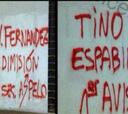 . FERNANDEZ
DIMISIÓN
SRS ASPELO
TINO
ESPABIL
1er AVIS